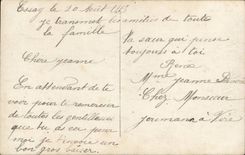 Essay le 20 Août
je transmet les amitiés de toute
la famille
Chère Jeanne
En attendant de te
voir pour te remercier
de toutes tes gentillesses
que tu as eu pour
moi je t'envoie un
bon gros baiser
Ta sœur qui pense
toujours à toi
René
Mme Jeanne
Chez Monsieur
à Vire